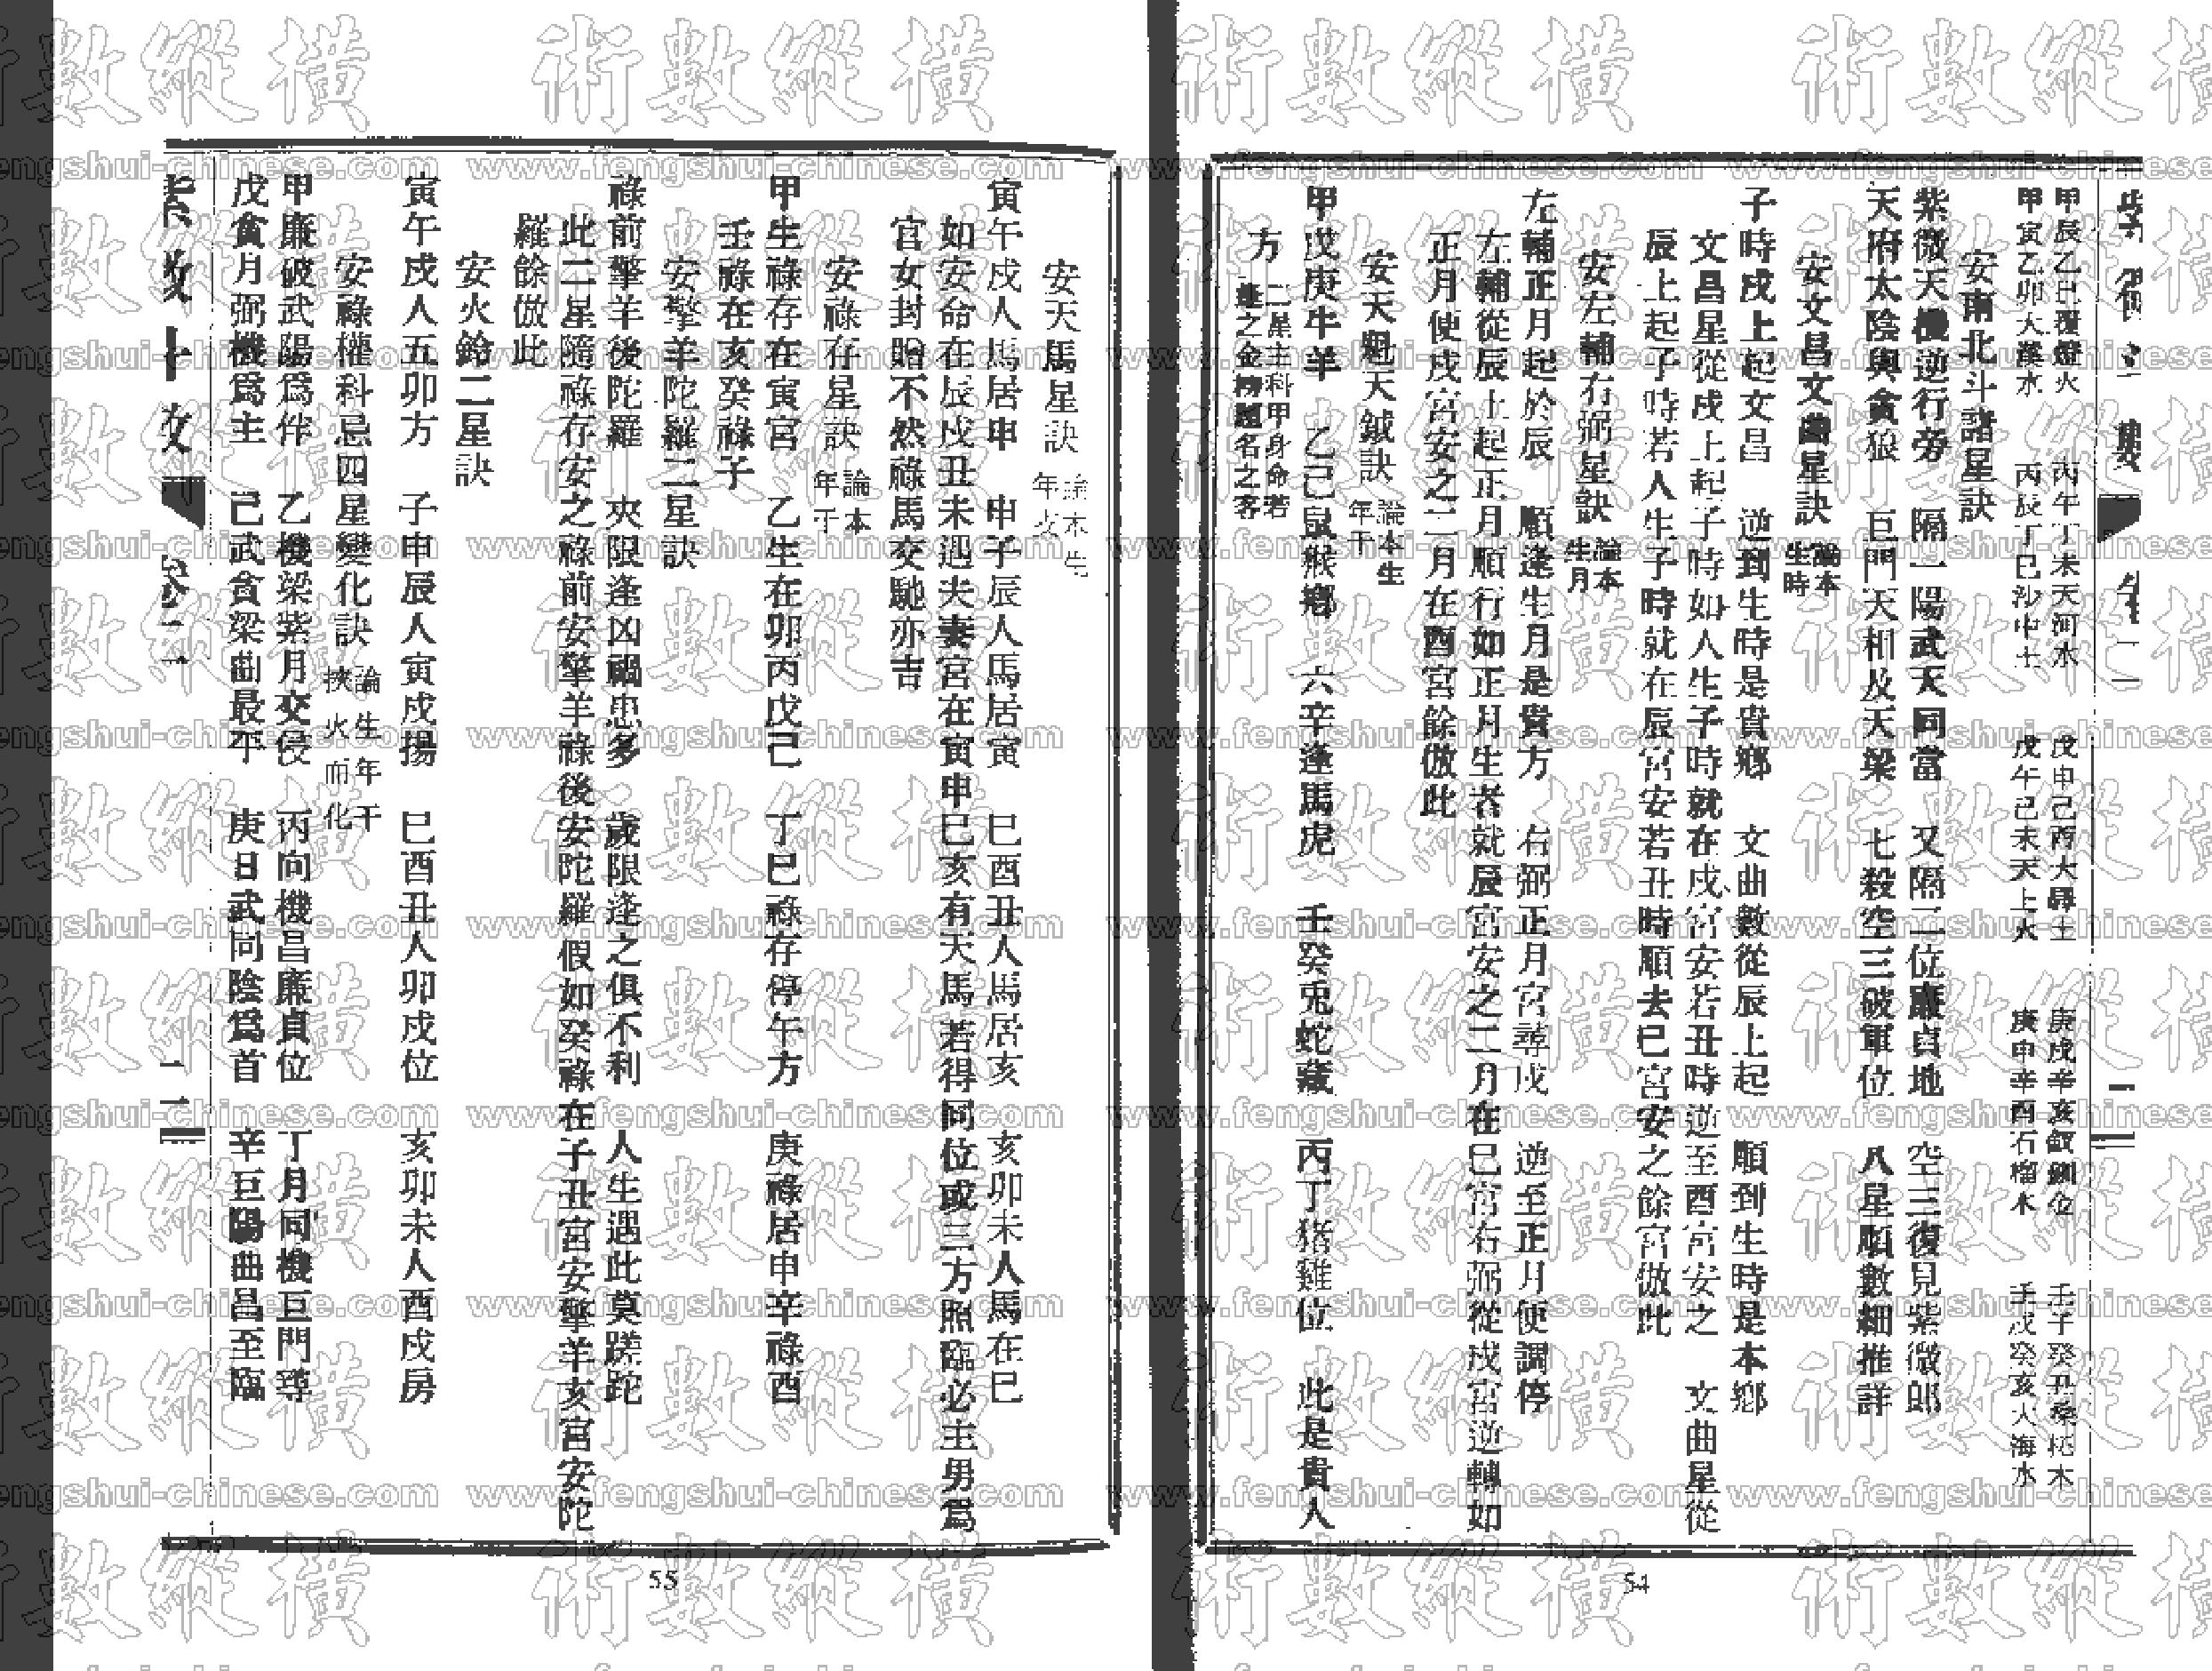 甲辰乙巳覆燈火　丙午丁未天河水　戊申己酉大驛土　庚戌辛亥釵釧位　壬子癸丑桑柘木
甲寅乙卯大溪水　丙辰丁巳沙中土　戊午己未天上火　庚申辛酉石榴木　壬戌癸亥大海水
安南北斗諸星訣
紫微天機逆行旁　隔一陽武天同當　又隔二位廉貞地　空三復見紫微郎
天府太陰與貪狼　巨門天相及天梁　七殺空三破軍位　八星順數細推詳
安文昌文曲星訣　論本生時
子時戌上起文昌　逆到生時是貴鄉　文曲數從辰上起　順到生時是本鄉
文昌星從戌上起子時如人生子時就在戌宮安若丑時逆至酉宮安之　文曲星從
辰上起子時若人生子時就在辰宮安若丑時順去巳宮安之餘宮倣此
安左輔右弼星訣　論本生月
左輔正月起於辰　順逢生月是貴方　右弼正月宮尋戌　逆至正月便調停
左輔從辰上起正月順行如正月生者就辰宮安之二月在巳宮右弼從戌宮逆轉如
正月便戌宮安之二月在酉宮餘倣此
安天魁天鉞訣　論本生年干
甲戊庚牛羊　乙己鼠猴鄉　六辛逢馬虎　壬癸兎蛇藏　丙丁猪雞位　此是貴人
方　二星主科甲身命若
逢之金榜題名之客
54
安天馬星訣　論本生年支
寅午戌人馬居申　申子辰人馬居寅　巳酉丑人馬居亥　亥卯未人馬在巳
如安命在辰戌丑未遇夫妻宮在寅申巳亥有天馬若得同位或三方照臨必主男爲
官女封贈不然祿馬交馳亦吉
安祿存星訣　論本年干
甲生祿存在寅宮　乙生在卯丙戊己　丁巳祿存停午方　庚祿居申辛祿酉
壬祿在亥癸祿子
安擎羊陀羅二星訣
祿前擎羊後陀羅　夾限逢凶禍患多　歲限逢之俱不利　人生遇此莫蹉跎
此二星隨祿存安之祿前安擎羊祿後安陀羅假如癸祿在子丑宮安擎羊亥宮安陀
羅餘倣此
安火鈴二星訣
寅午戌人丑卯方　子申辰人寅戌揚　巳酉丑人卯戌位　亥卯未人酉戌房
安祿權科忌四星變化訣　論生年干挨火而化
甲廉破武陽爲伴　乙機梁紫月交侵　丙同機昌廉貞位　丁月同機巨門尊
戊貪月弼機爲主　己武貪梁曲最平　庚日武同陰爲首　辛巨陽曲昌至臨
55
術數縱橫
www.fengshui-chinese.com